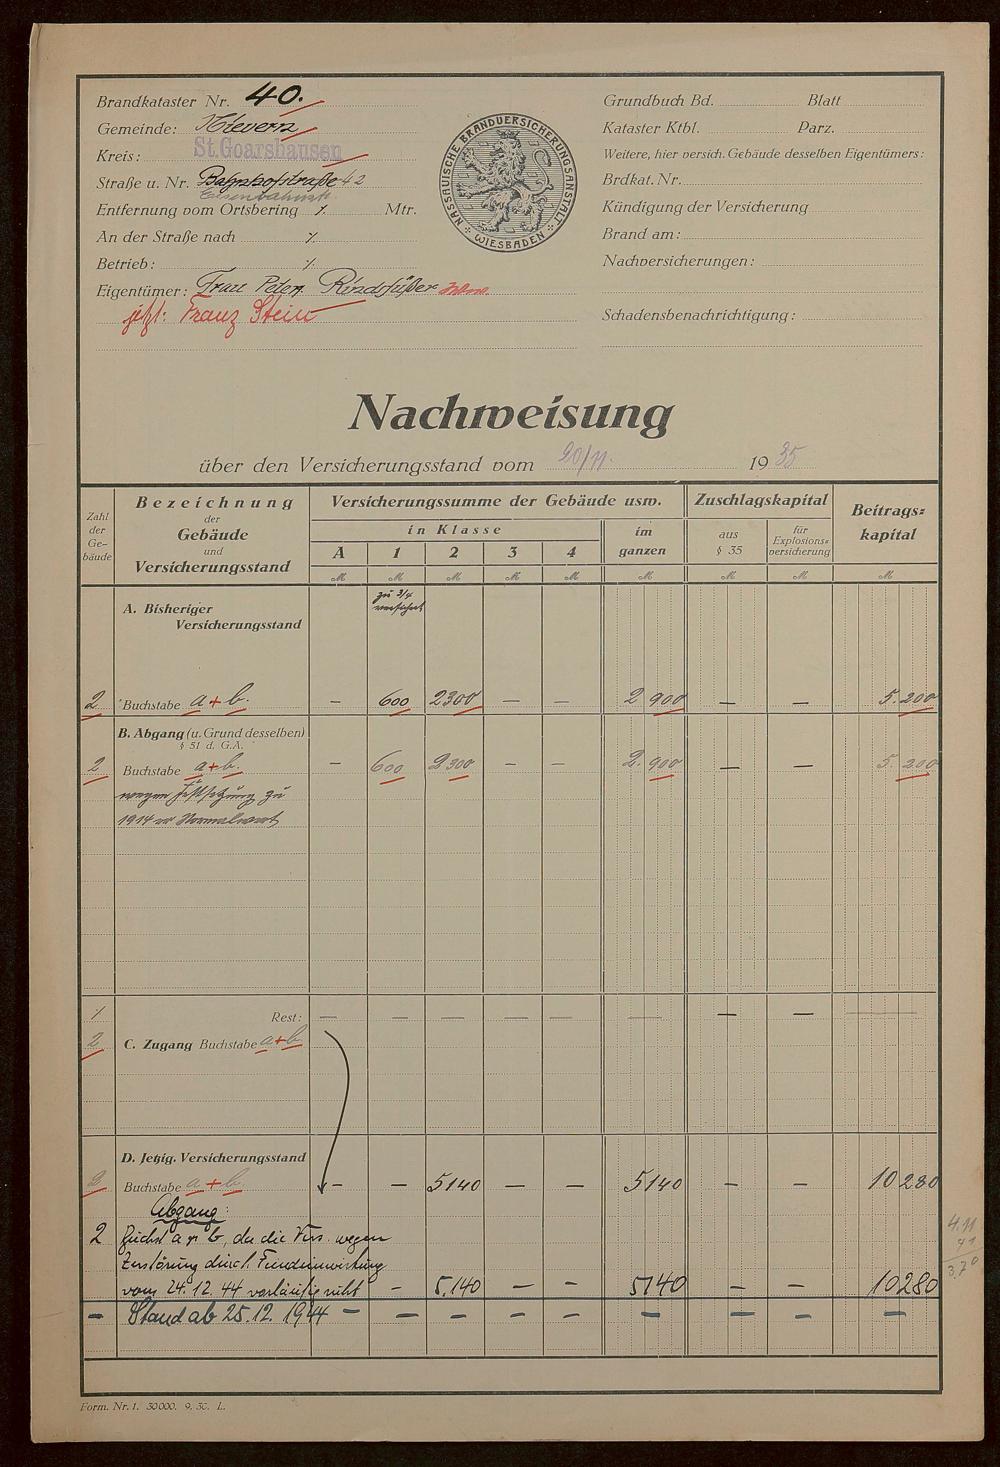 Brandkataster Nr. 40.
Gemeinde: Nievern
Kreis: St. Goarshausen
Straße u. Nr. Bahnhofstraße 42
Eisenbahnstr.
Entfernung vom Ortsbering ⁒ Mtr.
An der Straße nach ⁒
Betrieb: ⁒
Eigentümer: Frau Peter Rindsfüßer Wwe.
jetzt: Franz Stein
NASSAUISCHE BRANDVERSICHERUNGSANSTALT
WIESBADEN
Grundbuch Bd. Blatt
Kataster Ktbl. Parz.
Weitere, hier versich. Gebäude desselben Eigentümers:
Brdkat. Nr.
Kündigung der Versicherung
Brand am:
Nachversicherungen:
Schadensbenachrichtigung:
Nachweisung
über den Versicherungsstand vom 20/11. 1935
Zahl der Ge-bäude
Bezeichnung der Gebäude und Versicherungsstand
Versicherungssumme der Gebäude usw.
in Klasse
A 1 2 3 4
im ganzen
Zuschlagskapital
aus § 35
für Explosions=versicherung
Beitrags=kapital
M M M M M M M M M
A. Bisheriger
Versicherungsstand
zu 3/4
versichert
2 Buchstabe a + b. – 600 2300 – – 2 900 – – 5.200
B. Abgang (u. Grund desselben)
§ 51 d. G.A.
2 Buchstabe a+b. – 600 2300 – – 2.900 – – 5.200
wegen Festsetzung zu
1914 er Normalwert
⁒ Rest: – – – – – – – – –
2 C. Zugang Buchstabe a+b
D. Jetzig. Versicherungsstand
2 Buchstabe a + b – – 5140 – – 5140 – – 10280
Abgang:
2 Buchst a u b, da die Vers. wegen
Zerstörung durch Feindeinwirkung
vom 24.12.44 vorläufig ruht – 5.140 – – 5140 – – 10280
– Stand ab 25.12.1944 – – – – – – – – –
4.11
41
3,70
Form. Nr. 1. 30000. 9. 30. L.